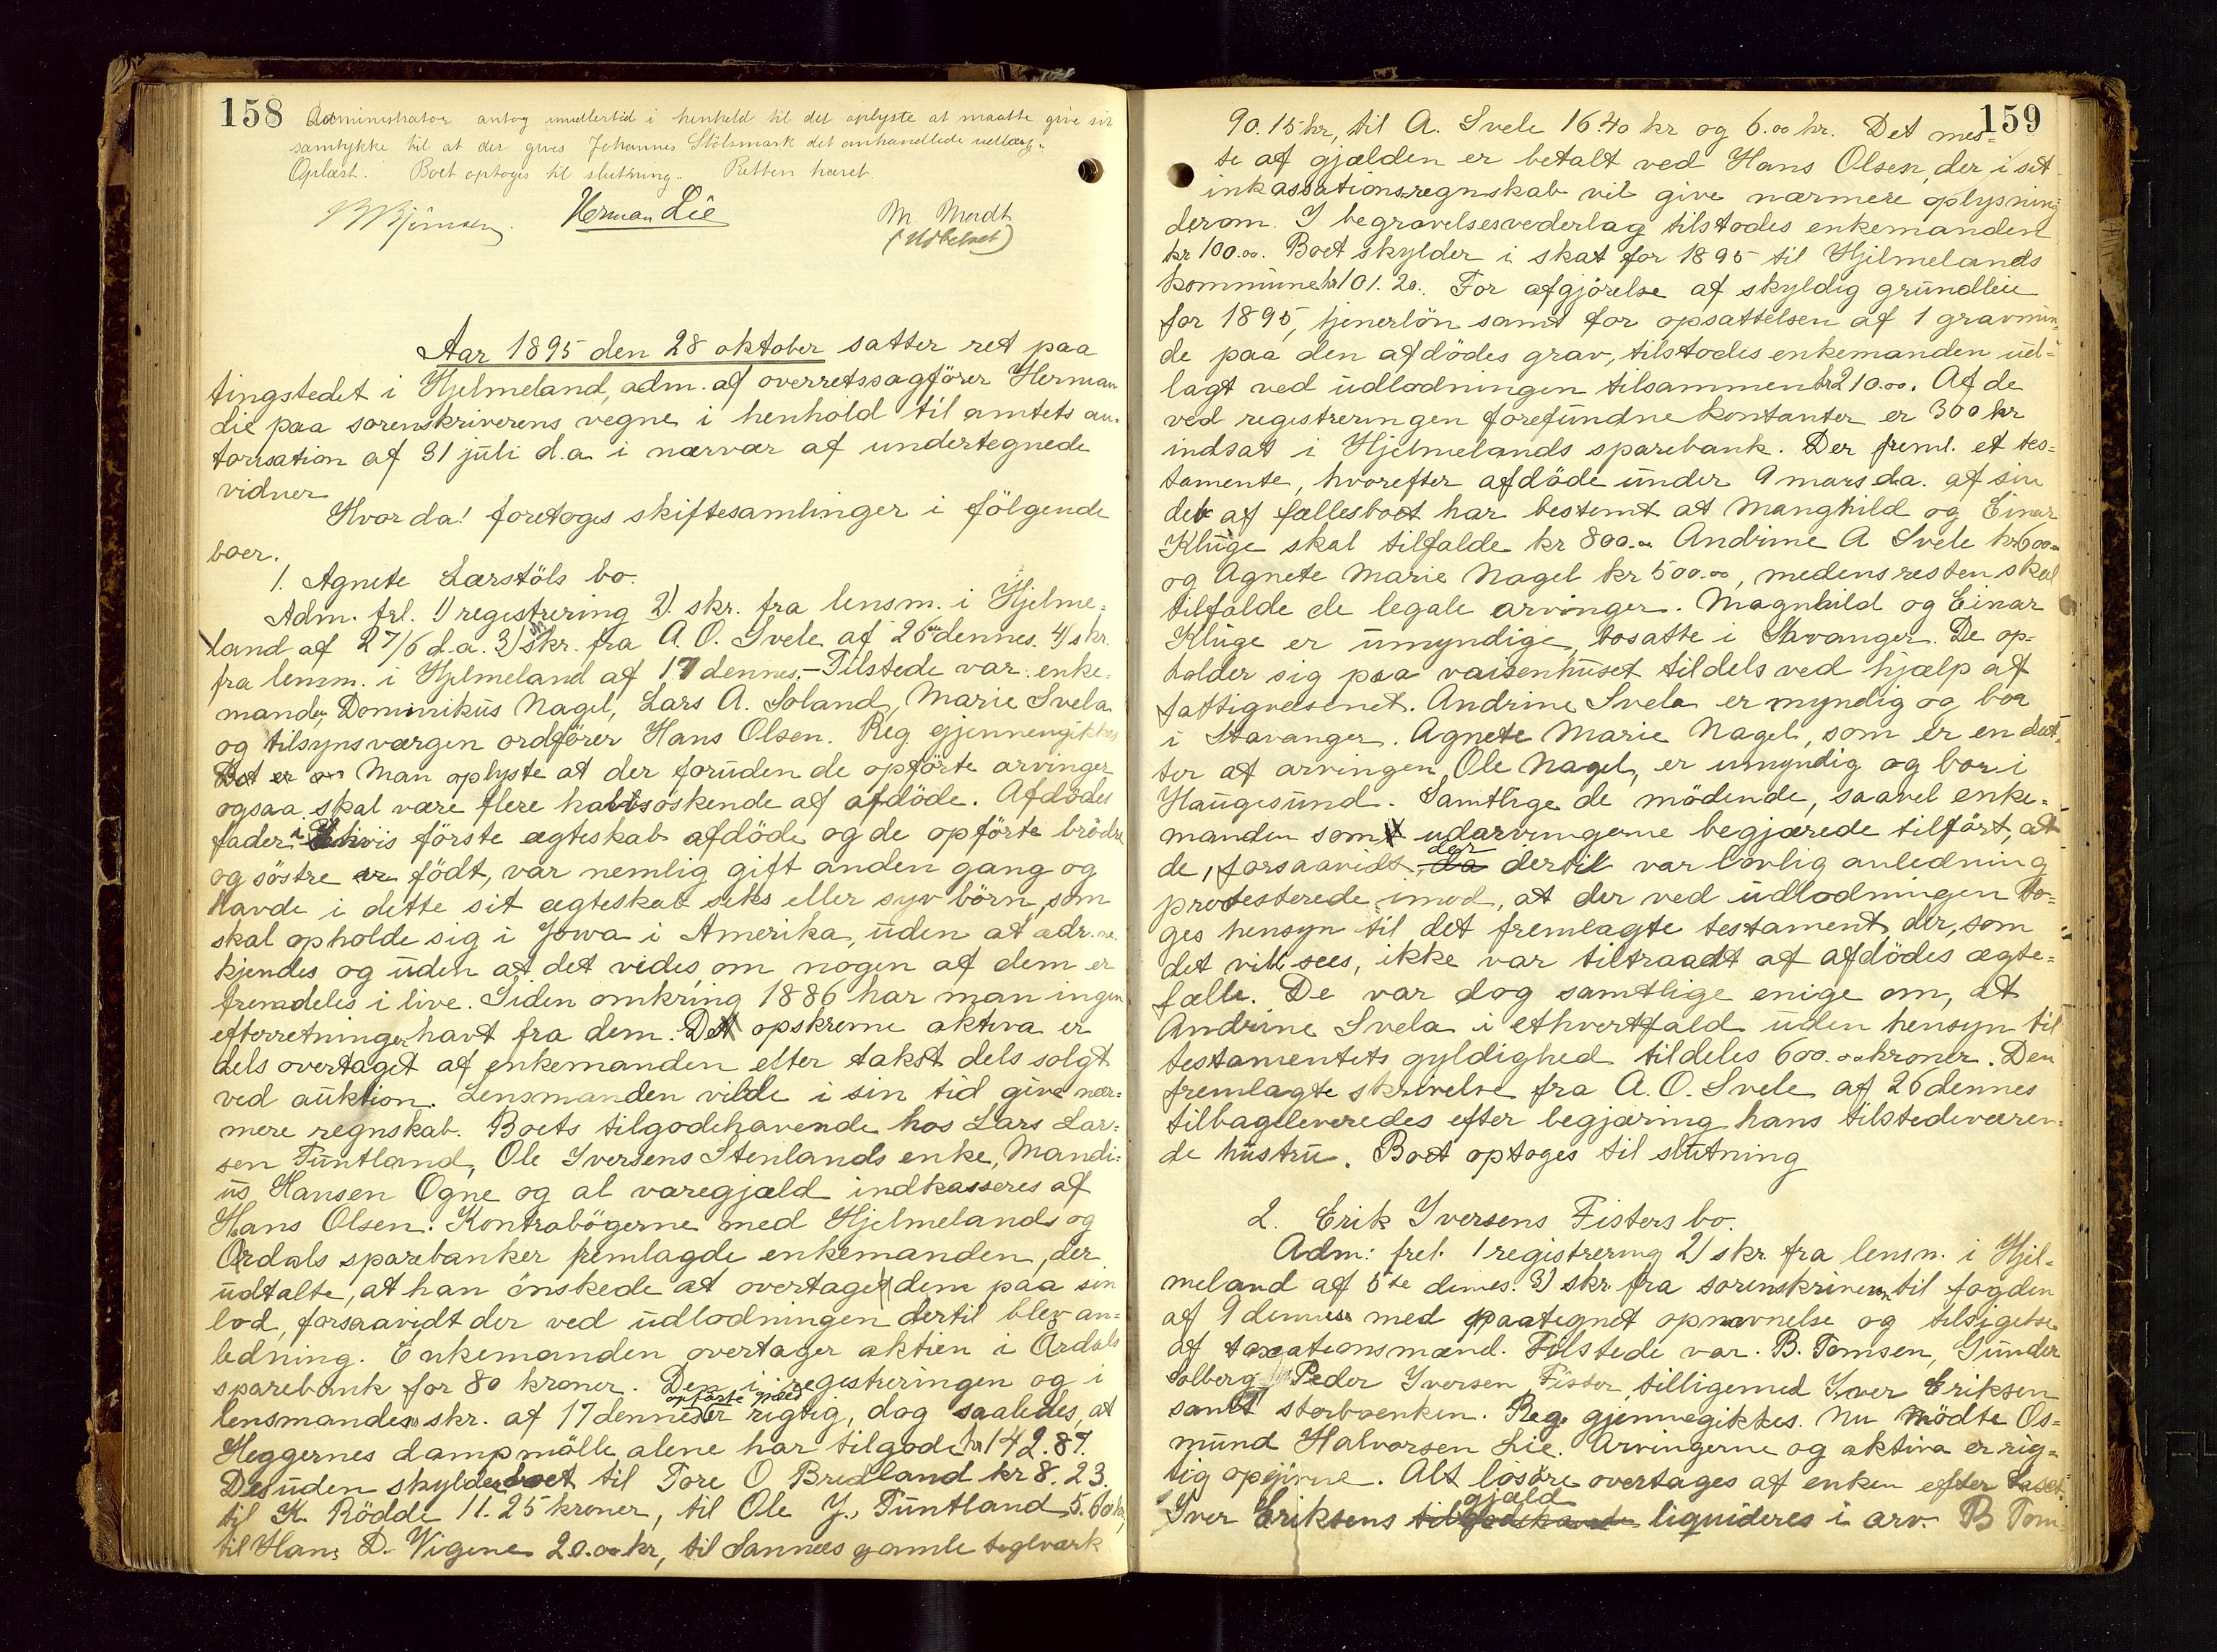 158
Administrator antog imidlertid i henhold til det oplyste at maatte give sit
samtykke til at der gives Johannes Stölsmark det omhandlede udlæg.
Oplæst. Boet optoges til slutning. Retten hævet.
Herman Lie
M. Mendt
(Udbetnet)
Aar 1895 den 28 oktober sattes ret paa
tingstedet i Hjelmeland, adm. af overretssagförer Herman
Lie paa sorenskriverens vegne i henhold til amtets au-
torisation af 31 juli d.a. i nærvær af undertegnede
vidner
Hvor da! foretoges skiftesamlinger i fölgende
boer.
1. Agnete Lærstöls bo.
Adm. frl. 1) registrering 2) skr. fra lensm. i Hjelme-
land af 27/6 d.a. 3) skr. fra A. O. Svele af 26 dennes. 4) skr.
fra lensm. i Hjelmeland af 17 dennes. – Tilstede var: enke-
manden Dominikus Nagel, Lars A. Soland, Marie Svela
og tilsynsværgen ordförer Hans Olsen. Reg. gjennemgikkes
Bot er Man oplyste at der foruden de opförte arvinger
ogsaa skal være flere halvsöskende af afdöde. Afdödes
fader i hvis förste ægteskab afdöde og de opförte brödre
og söstre er födt, var nemlig gift anden gang og
havde i dette sit ægteskab seks eller syv börn, som
skal opholde sig i Jowa i Amerika, uden at adr.
kjendes og uden at det vides, om nogen af dem er
fremdeles i live. Siden omkring 1886 har man ingen
efterretninger havt fra dem. De opskrevne aktiva er
dels overtaget af enkemanden efter takst dels solgt
ved auktion. Lensmanden vilde i sin tid give nær-
mere regnskab. Boets tilgodehavende hos Lars Lar-
sen Tuntland, Ole Iversens Stenlands enke, Mandi-
us Hansen Ogne og al varegjæld indkasseres af
Hans Olsen. Kontrabögerne med Hjelmelands og
Ardals sparebanker fremlagde enkemanden, der
udtalte, at han önskede at overtage dem paa sin
lod, forsaavidt der ved udlodningen dertil blev an-
ledning. Enkemanden overtager aktien i Ardals
sparebank for 80 kroner. Den i registreringen og i
opförte gjæld
lensmandens skr. af 17 dennes er rigtig, dog saaledes, at
Heggernes dampmölle alene har tilgode kr 142.87.
Desuden skylder boet til Tore O. Bredland kr 8.23.
til K. Rödde 11.25 kroner, til Ole J. Tuntland 5.60 kr,
til Hans D. Vigene 20.00 kr, til Sannæs gamle teglværk
159
90.15 kr, til A. Svele 16.40 kr og 6.00 kr. Det mes-
te af gjælden er betalt ved Hans Olsen, der i sit
inkassationsregnskab vil give nærmere oplysning
derom. I begravelsesvederlag tilstodes enkemanden
kr 100.00. Boet skylder i skat for 1895 til Hjilmelands
kommune kr 101.20. For afgjörelse af skyldig grundleie
for 1895, tjenerlön samt for opsættelsen af 1 gravmin-
de paa den afdödes grav, tilstodes enkemanden ud-
lagt ved udlodningen tilsammen kr 210.00. Af de
ved registreringen forefundne kontanter er 300 kr
indsat i Hjelmelands sparebank. Der freml. et tes-
tamente, hvorefter afdöde under 9 mars d.a. af sin
del af fællesboet har bestemt at Manghild og Einar
Kluge skal tilfalde kr 800.00 Andrine A Svele kr 600.00
og Agnete Marie Nagel kr 500.00, medens resten skal
tilfalde de legale arvinger. Magnhild og Einar
Kluge er umyndige, bosatte i Stavanger. De op-
holder sig paa vaisenhuset tildels ved hjælp af
fattigvæsenet. Andrine Svela er myndig og bor
i Stavanger. Agnete Marie Nagel, som er en dat-
ter af arvingen Ole Nagel, er umyndig og bor i
Haugesund. Samtlige de mödende, saavel enke-
manden som udarvingerne begjærede tilfört, at
der
de, forsaavidt da dertil var lovlig anledning
protesterede imod, at der ved udlodningen to-
ges hensyn til det fremlagte testament, der, som
det vil sees, ikke var tiltraadt af afdödes ægte-
fælle. De var dog samtlige enige om, at
Andrine Svela i ethvertfald uden hensyn til
testamentets gyldighed tildeles 600.00 kroner. Den
fremlagte skrivelse fra A. O. Svele af 26 dennes
tilbageleveredes efter begjæring hans tilstedeværen-
de hustru. Boet optoges til slutning
2. Erik Iversens Fisters bo.
Adm: frel. 1 registrering 2) skr. fra lensm. i Hjel-
meland af 5te dennes. 3) skr. fra sorenskriveren til fogden
af 9 dennes med paategnet opnævnelse og tilsigelse
af taxationsmænd. Tilstede var. B. Tomsen, Gunder
Solberg, Peder Iversen Fister tilligemed Iver Eriksen
samt sterboenken. Reg. gjennegikkes. Nu mödte Os-
mund Halvorsen Lie. Arvingerne og aktiva er rig-
tig opgivne. Alt lösöre overtages af enken efter taxst.
gjæld
Iver Eriksens tilgodehavende liquideres i arv. B Tom-